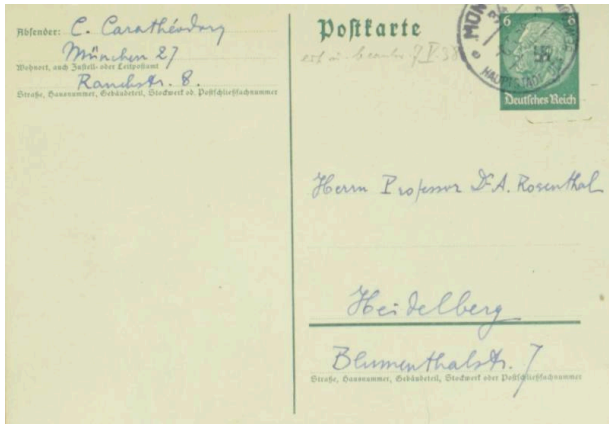 Absender: C. Carathéodory
München 27
Wohnort, auch Zustell- oder Leitpostamt
Rauchstr. 8.
Straße, Hausnummer, Gebäudeteil, Stockwerk od. Postschließfachnummer
Postkarte
7 V 38
6 6
Deutsches Reich
HAUPTSTADT
Herrn Professor Dr A. Rosenthal
Heidelberg
Blumenthalstr. 7
Straße, Hausnummer, Gebäudeteil, Stockwerk oder Postschließfachnummer